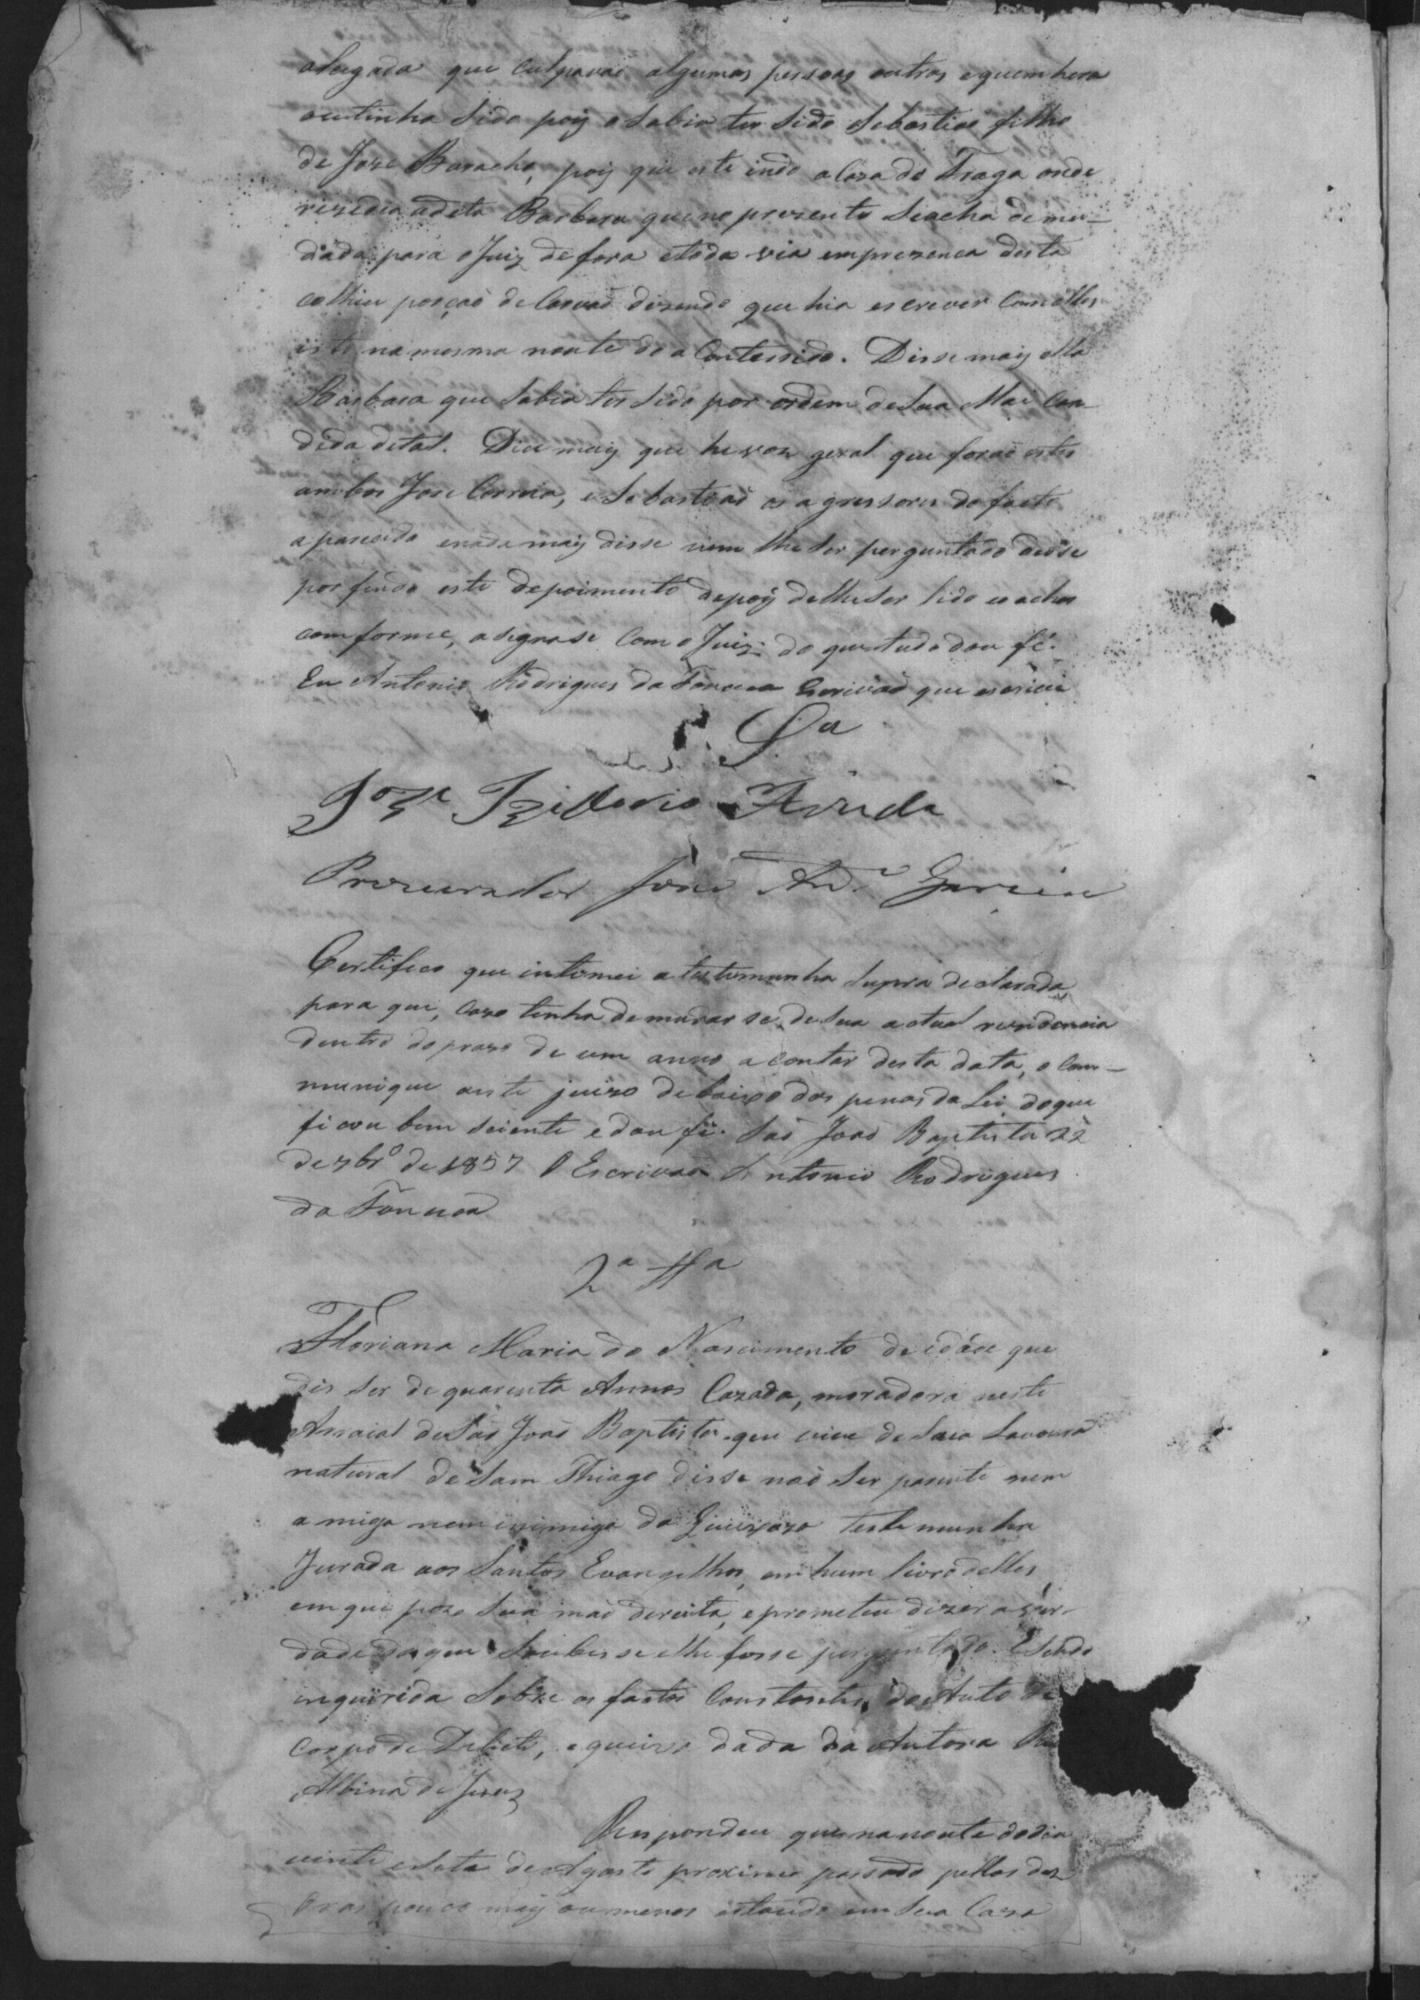 que culpavaõ algumas pessoas outras equem hera
outinha Sido poiz o Sabia ter Sido Sebastiaõ filho
de Joze Baracho, poiz que este indo a Caza do Fraga onde
rezedia adita Barbara queno prezente Seacha demu-
dada para o Juiz de fora etoda via empresenca desta
colhiu porçaõ de Carvaõ dizendo que hia escrever Com elles
isto namesma noute do a Contessido. Disse maiz ella
Barbara que Sabia ter Sido por ordem de Sua Mai Can
dida detal. Dice maiz que he voz geral que foraõ estes
ambos Joze Correa, e Sebastiaõ os agressores do facto
aparecido enada maiz disse nem lhe Ser perguntado deuse
por findo este depoimento depoiz delhe Ser lido eo achar
comforme, asignase Com o Juiz do quetudo dou fé.
Eu Antonio Rodrigues da Fonseca Escrivaõ que escrivi
Joze Izidorio Arruda
Procurador Joze An.e Garcia
Certifico que intimei a testemunha Supra declarada
para que, Cazo tenha demudar se de Sua actual rezidencia
dentro do prazo de um anno a contar desta data, o Com-
munique aeste juizo debaixo das penas da Lei doque
ficou bem sciente edou fé. Saõ Joaõ Baptista 22
de 7br.o de 1857 O Escrivaõ Antonio Rodrigues
da Fonseca
2a Tta
Floriana Maria do Nascimento de idade que
dis Ser de quarenta Annos Cazada, moradora neste
Arraial de Saõ Joaõ Baptista que vive de Sua Lavoura
natural de Sam Thiago disse naõ Ser parente nem
amiga nem inimiga do Queixozo testemunha
Jurada aos Santos Evangelhos, em hum livro delles
em que poze Sua maõ dereita, eprometeu dizer a ver-
dade doque Soubesse elhe fosse perguntado. E Sendo
inquirida Sobre os factos Constantes, do Auto de
Corpo de Delicto, e queixa dada da Autora
Albina de Jezuz
Respondeu quenanoute dodia
vinte eSete de Agosto proximo passado pellas dez
oras pouco maiz oumenos estando em Sua Caza